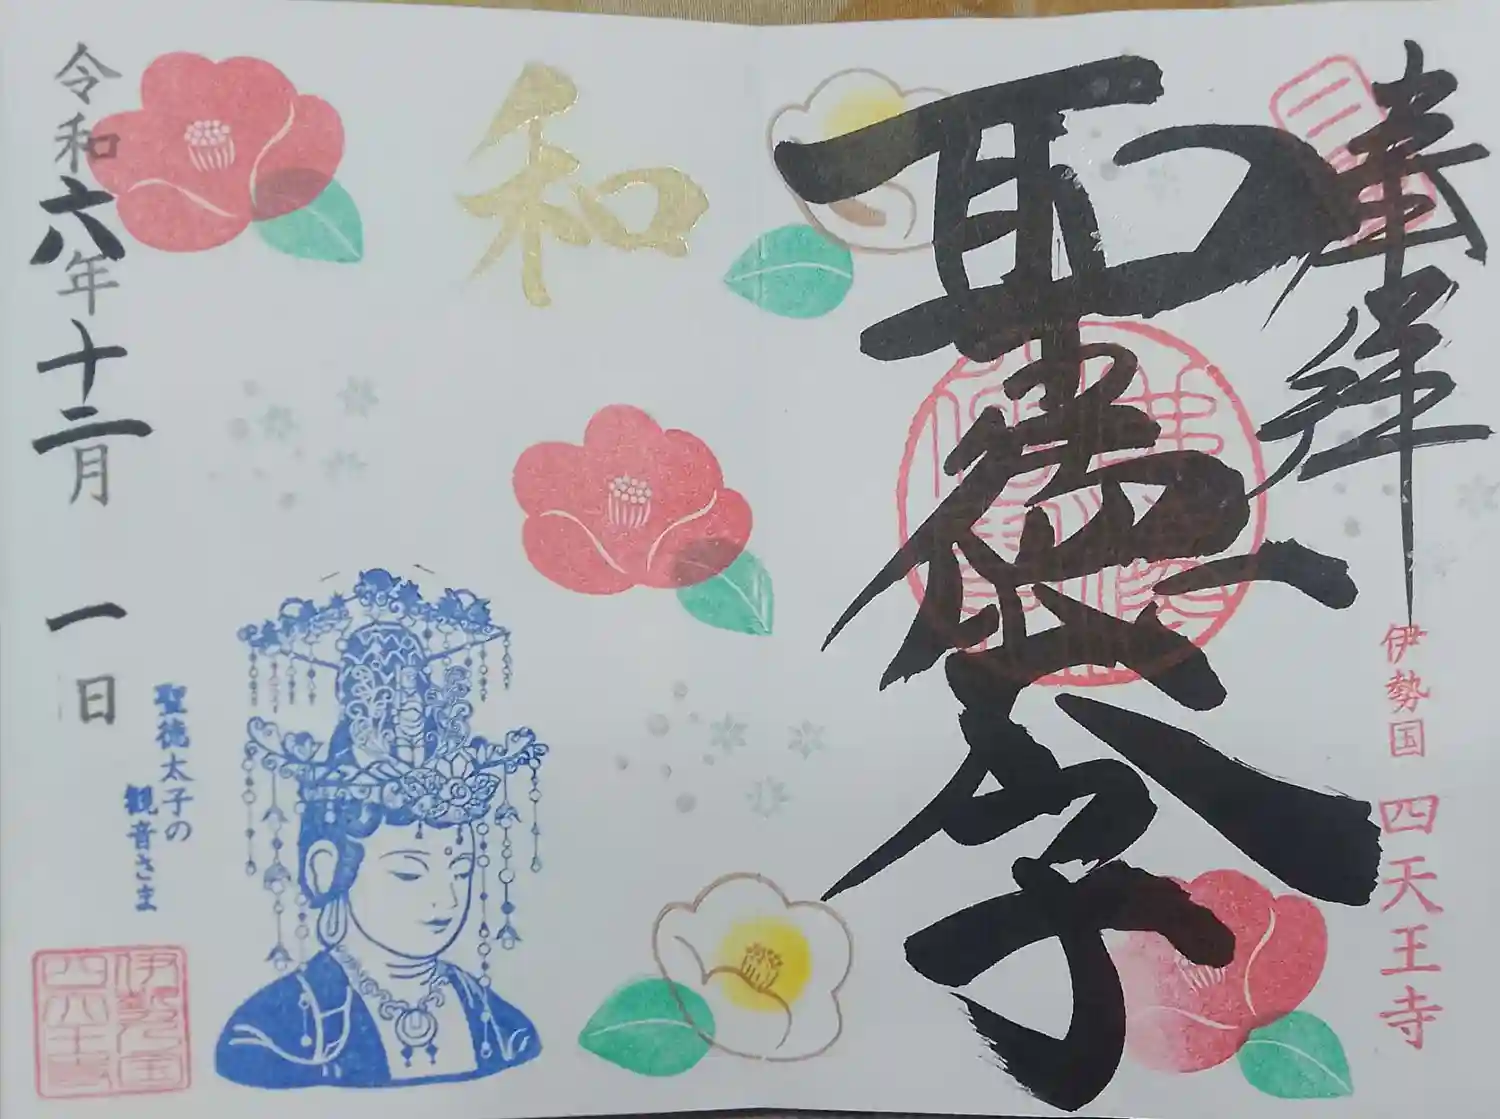 奉拝
伊勢国 四天王寺
聖徳太子
和
聖徳太子の
観音さま
令和六年十二月一日
伊勢国
四天王寺